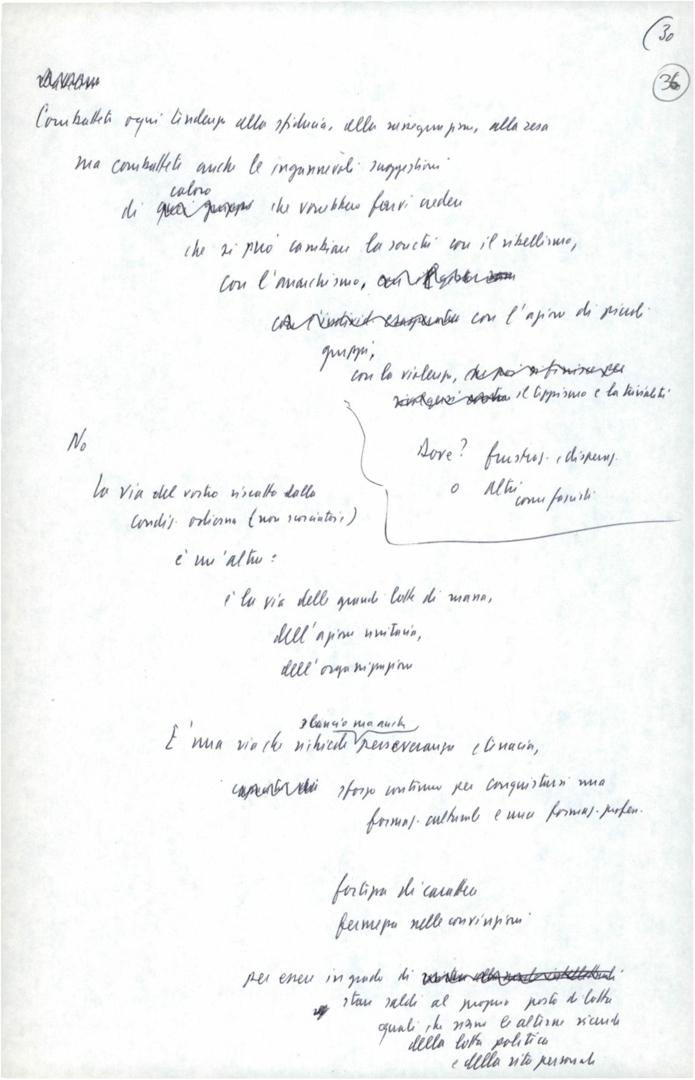 (30
36
Combattete ogni tendenza alla sfiducia, alla rassegnazione, alla resa
ma combattete anche le ingannevoli suggestioni
coloro
di che vorrebbero farvi credere
che si può cambiare la società con il ribellismo,
con l'anarchismo,
con l'azione di piccoli
gruppi,
con la violenza,
il teppismo e la trivialità
No
Dove? frustraz. e disperaz.
o altri
come fascisti
La via del vostro riscatto dalla
condiz. odierna (non scoraggiatevi)
è un'altra:
è la via delle grandi lotte di massa,
dell'azione unitaria,
dell'organizzazione
slancio ma anche
È una via che richiede perseveranza e tenacia,
sforzo continuo per conquistarsi una
formaz. culturale e una formaz. profess.
fortezza di carattere
fermezza nelle convinzioni
per essere in grado di
stare saldi al proprio posto di lotta
quali che siano le alterne vicende
della lotta politica
e della vita personale